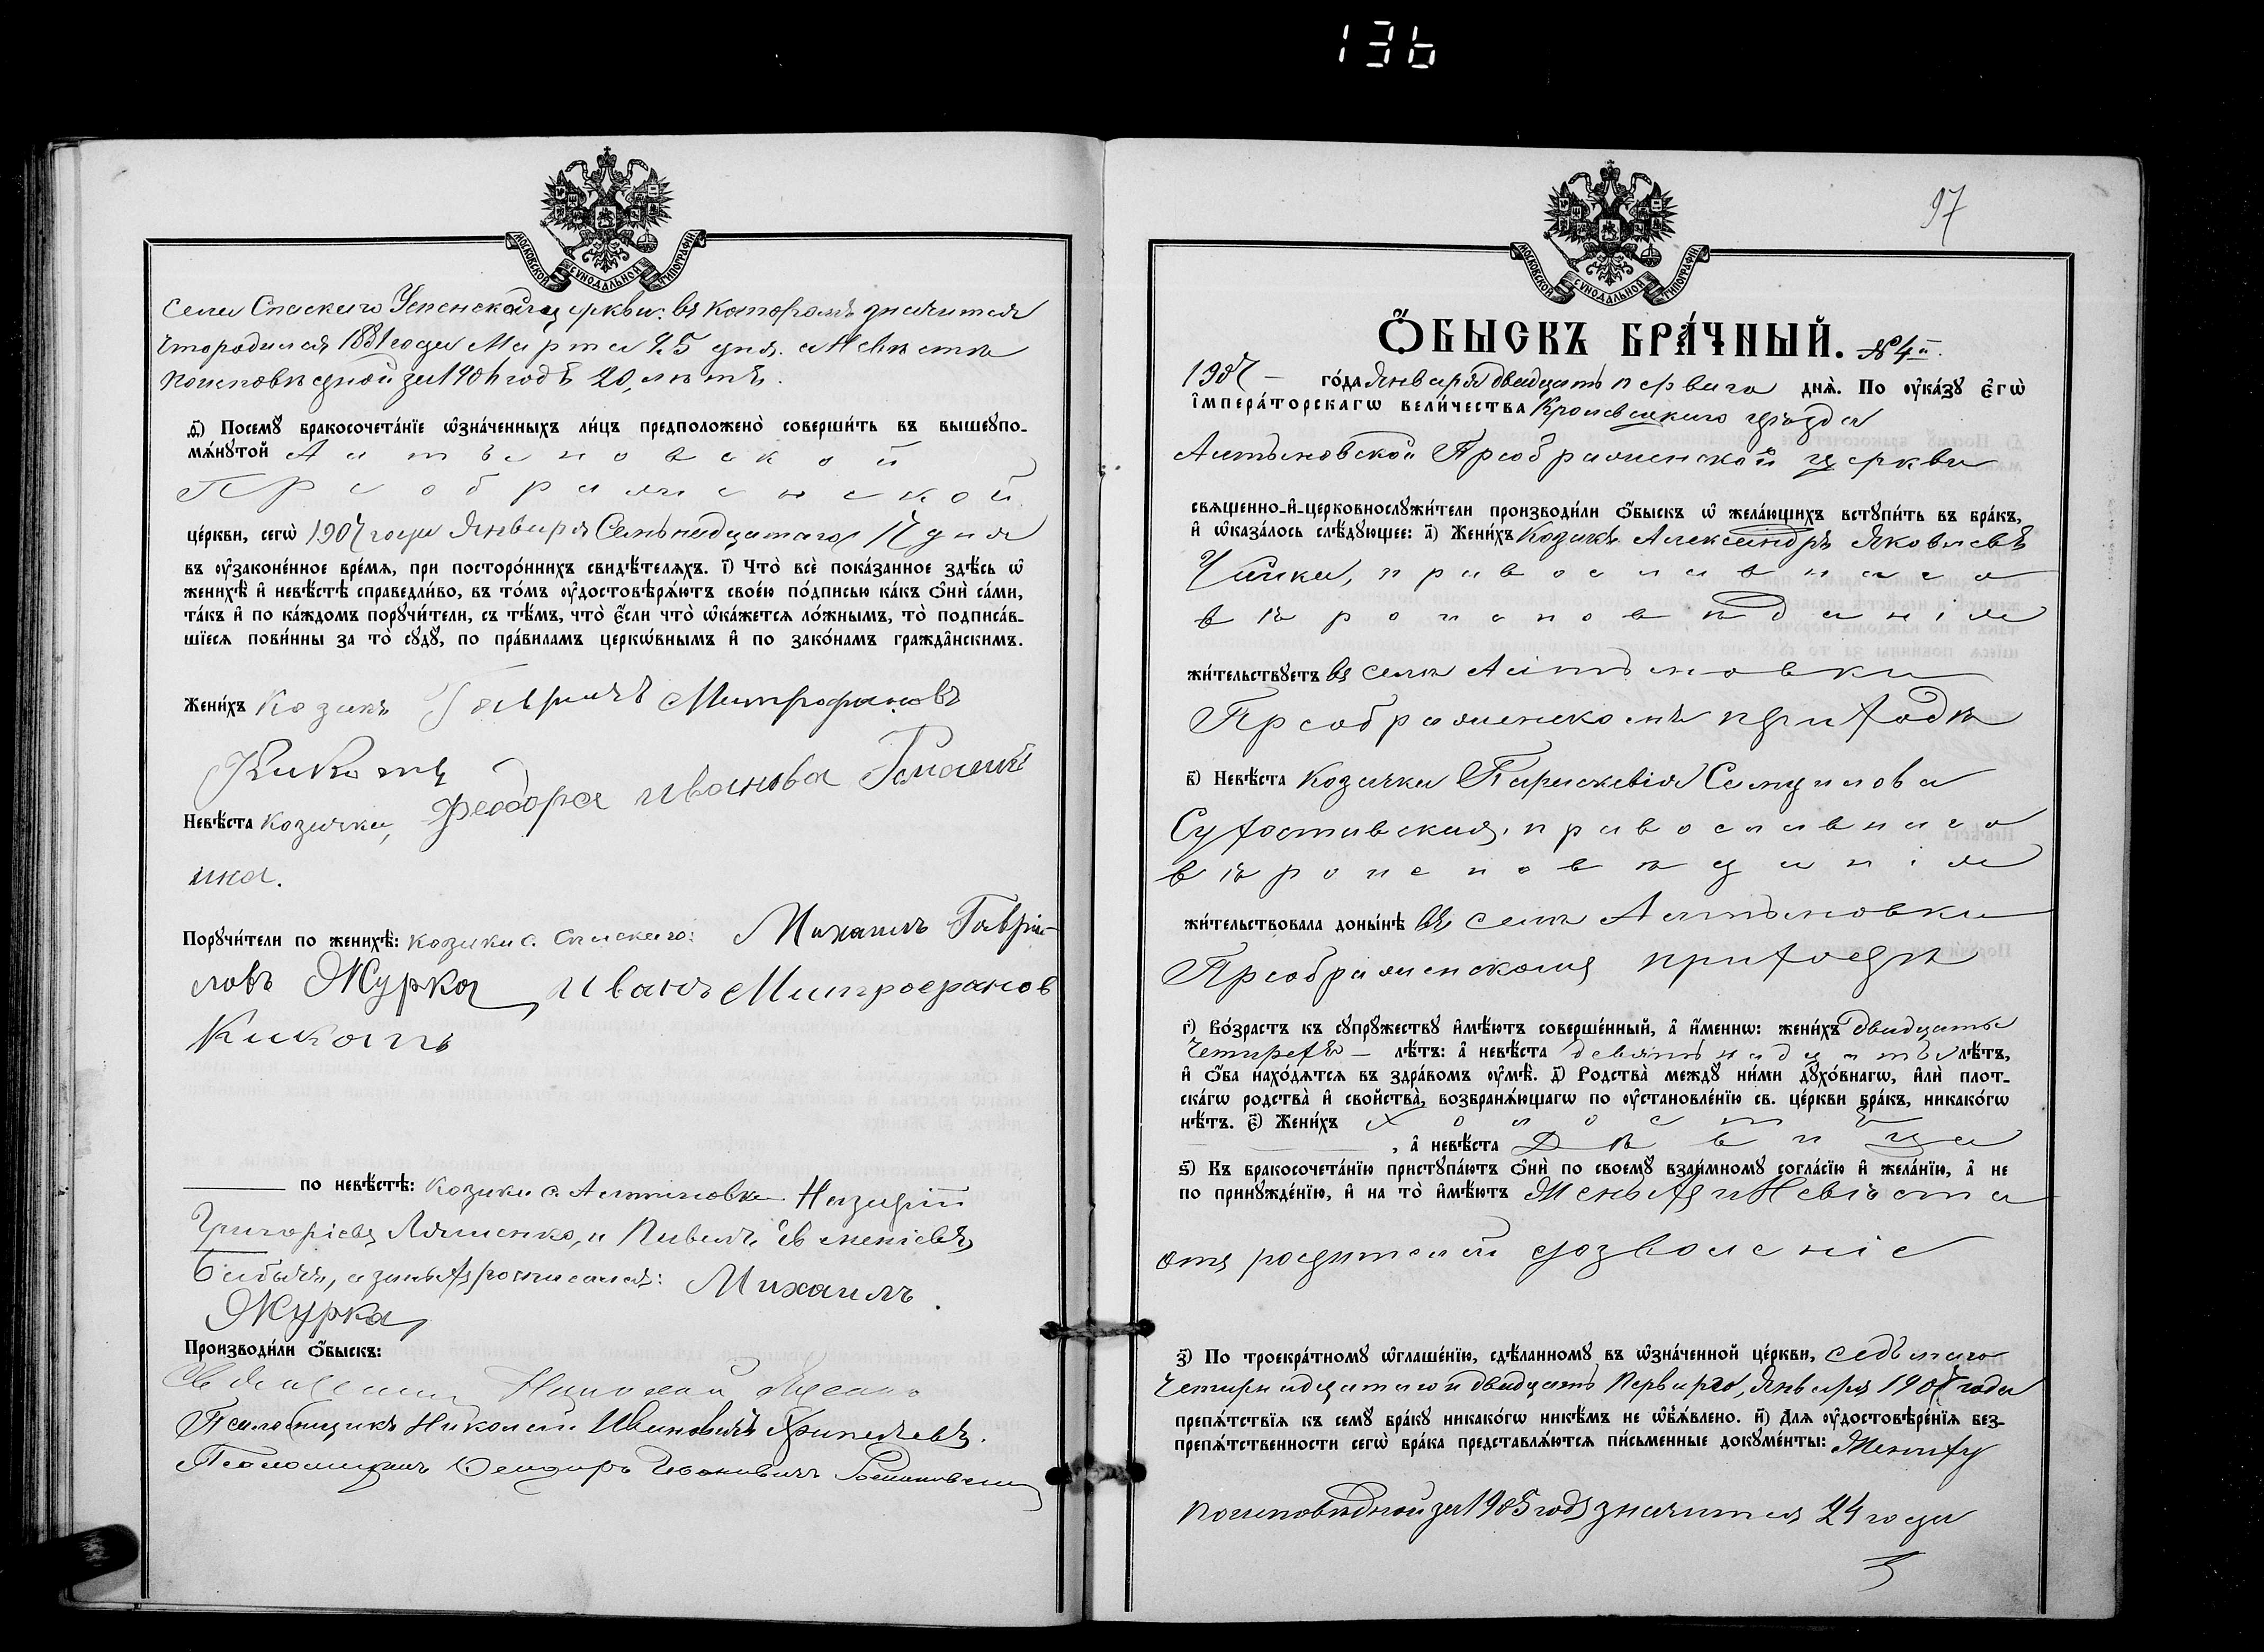 136
МОСКОВСКОЙ СѴНОДАЛЬНОЙ ТИПОГРАФІИ
села Спаскаго Успенской церкви: въ которомъ значится
что родился 1881 года Марта 25 дня. а Невѣста
по исповѣдной за 1906 годъ 20, лѣтъ.
ѳ҃) Посемꙋ̀ бракосочета́нїе ѡ҆зна́ченныхъ ли́цъ предположено̀ соверши́ть въ вышеꙋпо-
мѧ́нꙋтой Алтыновской
Преображенской
це́ркви, сегѡ̀ 1907 года Января Семьнадцатаго 17 дня
въ ᲂу҆законе́нное вре́мѧ, при посторо́ннихъ свидѣ́телѧхъ. і҃) Что̀ всѐ пока́занное здѣ́сь ѡ҆
женихѣ̀ и҆ невѣ́стѣ справедли́во, въ то́мъ ᲂу҆достовѣрѧ́ютъ свое́ю по́дписью ка́къ ѻ҆нѝ са́ми,
та́къ и҆ по ка́ждомъ порꙋчи́тели, съ тѣ́мъ, что̀ є҆́сли что̀ ѡ҆ка́жетсѧ ло́жнымъ, то̀ подписа́в-
шїесѧ пови́нны за то̀ сꙋдꙋ̀, по пра́виламъ церко́внымъ и҆ по зако́намъ гражда́нскимъ.
Жени́хъ Козакъ Гаврилъ Митрофановъ
Кикоть
Невѣ́ста козачка, Феодора иванова
Порꙋчи́тели по женихѣ̀: козаки с. Спаскаго: Михаилъ Гаври-
ловъ Журка, Иванъ Митрофанов
Кикоть
по невѣ́стѣ: козаки с. Алтыновки Назарій
Григоріевъ Ляшенко, и Павелъ
росписался: Михаилъ
Журка
Производи́ли ѻ҆́быскъ:
Священникъ Николай
Псаломщикъ Николай Ивановичъ
Псаломщикъ Ивановичъ
97
МОСКОВСКОЙ СѴНОДАЛЬНОЙ ТИПОГРАФІИ
Ѻ҆́БЫСКЪ БРА́ЧНЫЙ. №4й.
1907 — го́да Января двадцать перваго днѧ̀. По ᲂу҆ка́зꙋ Є҆гѡ̀
і҆мпера́торскагѡ вели́чества Кролевецкаго уѣзда
Алтыновской Преображенской церкви
свѧщенно-и҆-церковнослꙋжи́тели производи́ли ѻ҆́быскъ ѡ҆ жела́ющихъ встꙋпи́ть въ бра́къ,
и҆ ѡ҆каза́лось слѣ́дꙋющее: а҃) Жени́хъ Козакъ Александръ Яковлевъ
Чайка, православнаго
вѣроисповѣданія
жи́тельствꙋетъ въ селѣ Алтыновки
Преображенскомъ приходѣ
в҃) Невѣ́ста Козачка Параскевія Самуилова
Сухоставская, православнаго
вѣроисповѣданія
жи́тельствовала доны́нѣ въ селѣ Алтыновки
Преображенскомъ приходѣ
г҃) Во́зрастъ къ сꙋпрꙋ́жествꙋ и҆мѣ́ютъ соверше́нный, а҆ и҆́меннѡ: жени́хъ двадцать
четырехъ — лѣ́тъ: а҆ невѣ́ста девятьнадцать лѣ́тъ,
и҆ ѻ҆́ба нахо́дѧтсѧ въ здра́вомъ ᲂу҆мѣ̀. д҃) Родства̀ междꙋ̀ ни́ми дꙋхо́внагѡ, и҆лѝ плот-
ска́гѡ родства̀ и҆ сво́йства̀, возбранѧ́ющагѡ по ᲂу҆становле́нїю св. це́ркви бра́къ, никако́гѡ
нѣ́тъ. є҃) Жени́хъ холостъ
, а҆ невѣ́ста дѣвица
ѕ҃) Къ бракосочета́нїю пристꙋпа́ютъ ѻ҆нѝ по своемꙋ̀ взаи́мномꙋ согла́сїю и҆ жела́нїю, а҆ не
по принꙋжде́нїю, и҆ на то̀ и҆мѣ́ютъ Женихъ и Невѣста
отъ родителей дозволеніе
з҃) По троекра́тномꙋ ѡ҆глаше́нїю, сдѣ́ланномꙋ въ ѡ҆зна́ченной це́ркви, седьмаго
четырнадцатаго и двадцать перваго, Января 1907 года
препѧ́тствїѧ къ семꙋ̀ бра́кꙋ никако́гѡ никѣ́мъ не ѡ҆б̾ѧ́влено. и҃) Длѧ ᲂу҆достовѣре́нїѧ без-
препѧ́тственности сегѡ̀ бра́ка представлѧ́ютсѧ пи́сьменные докꙋме́нты: Жениху
по исповѣдной за 1905 годъ значится 24 года